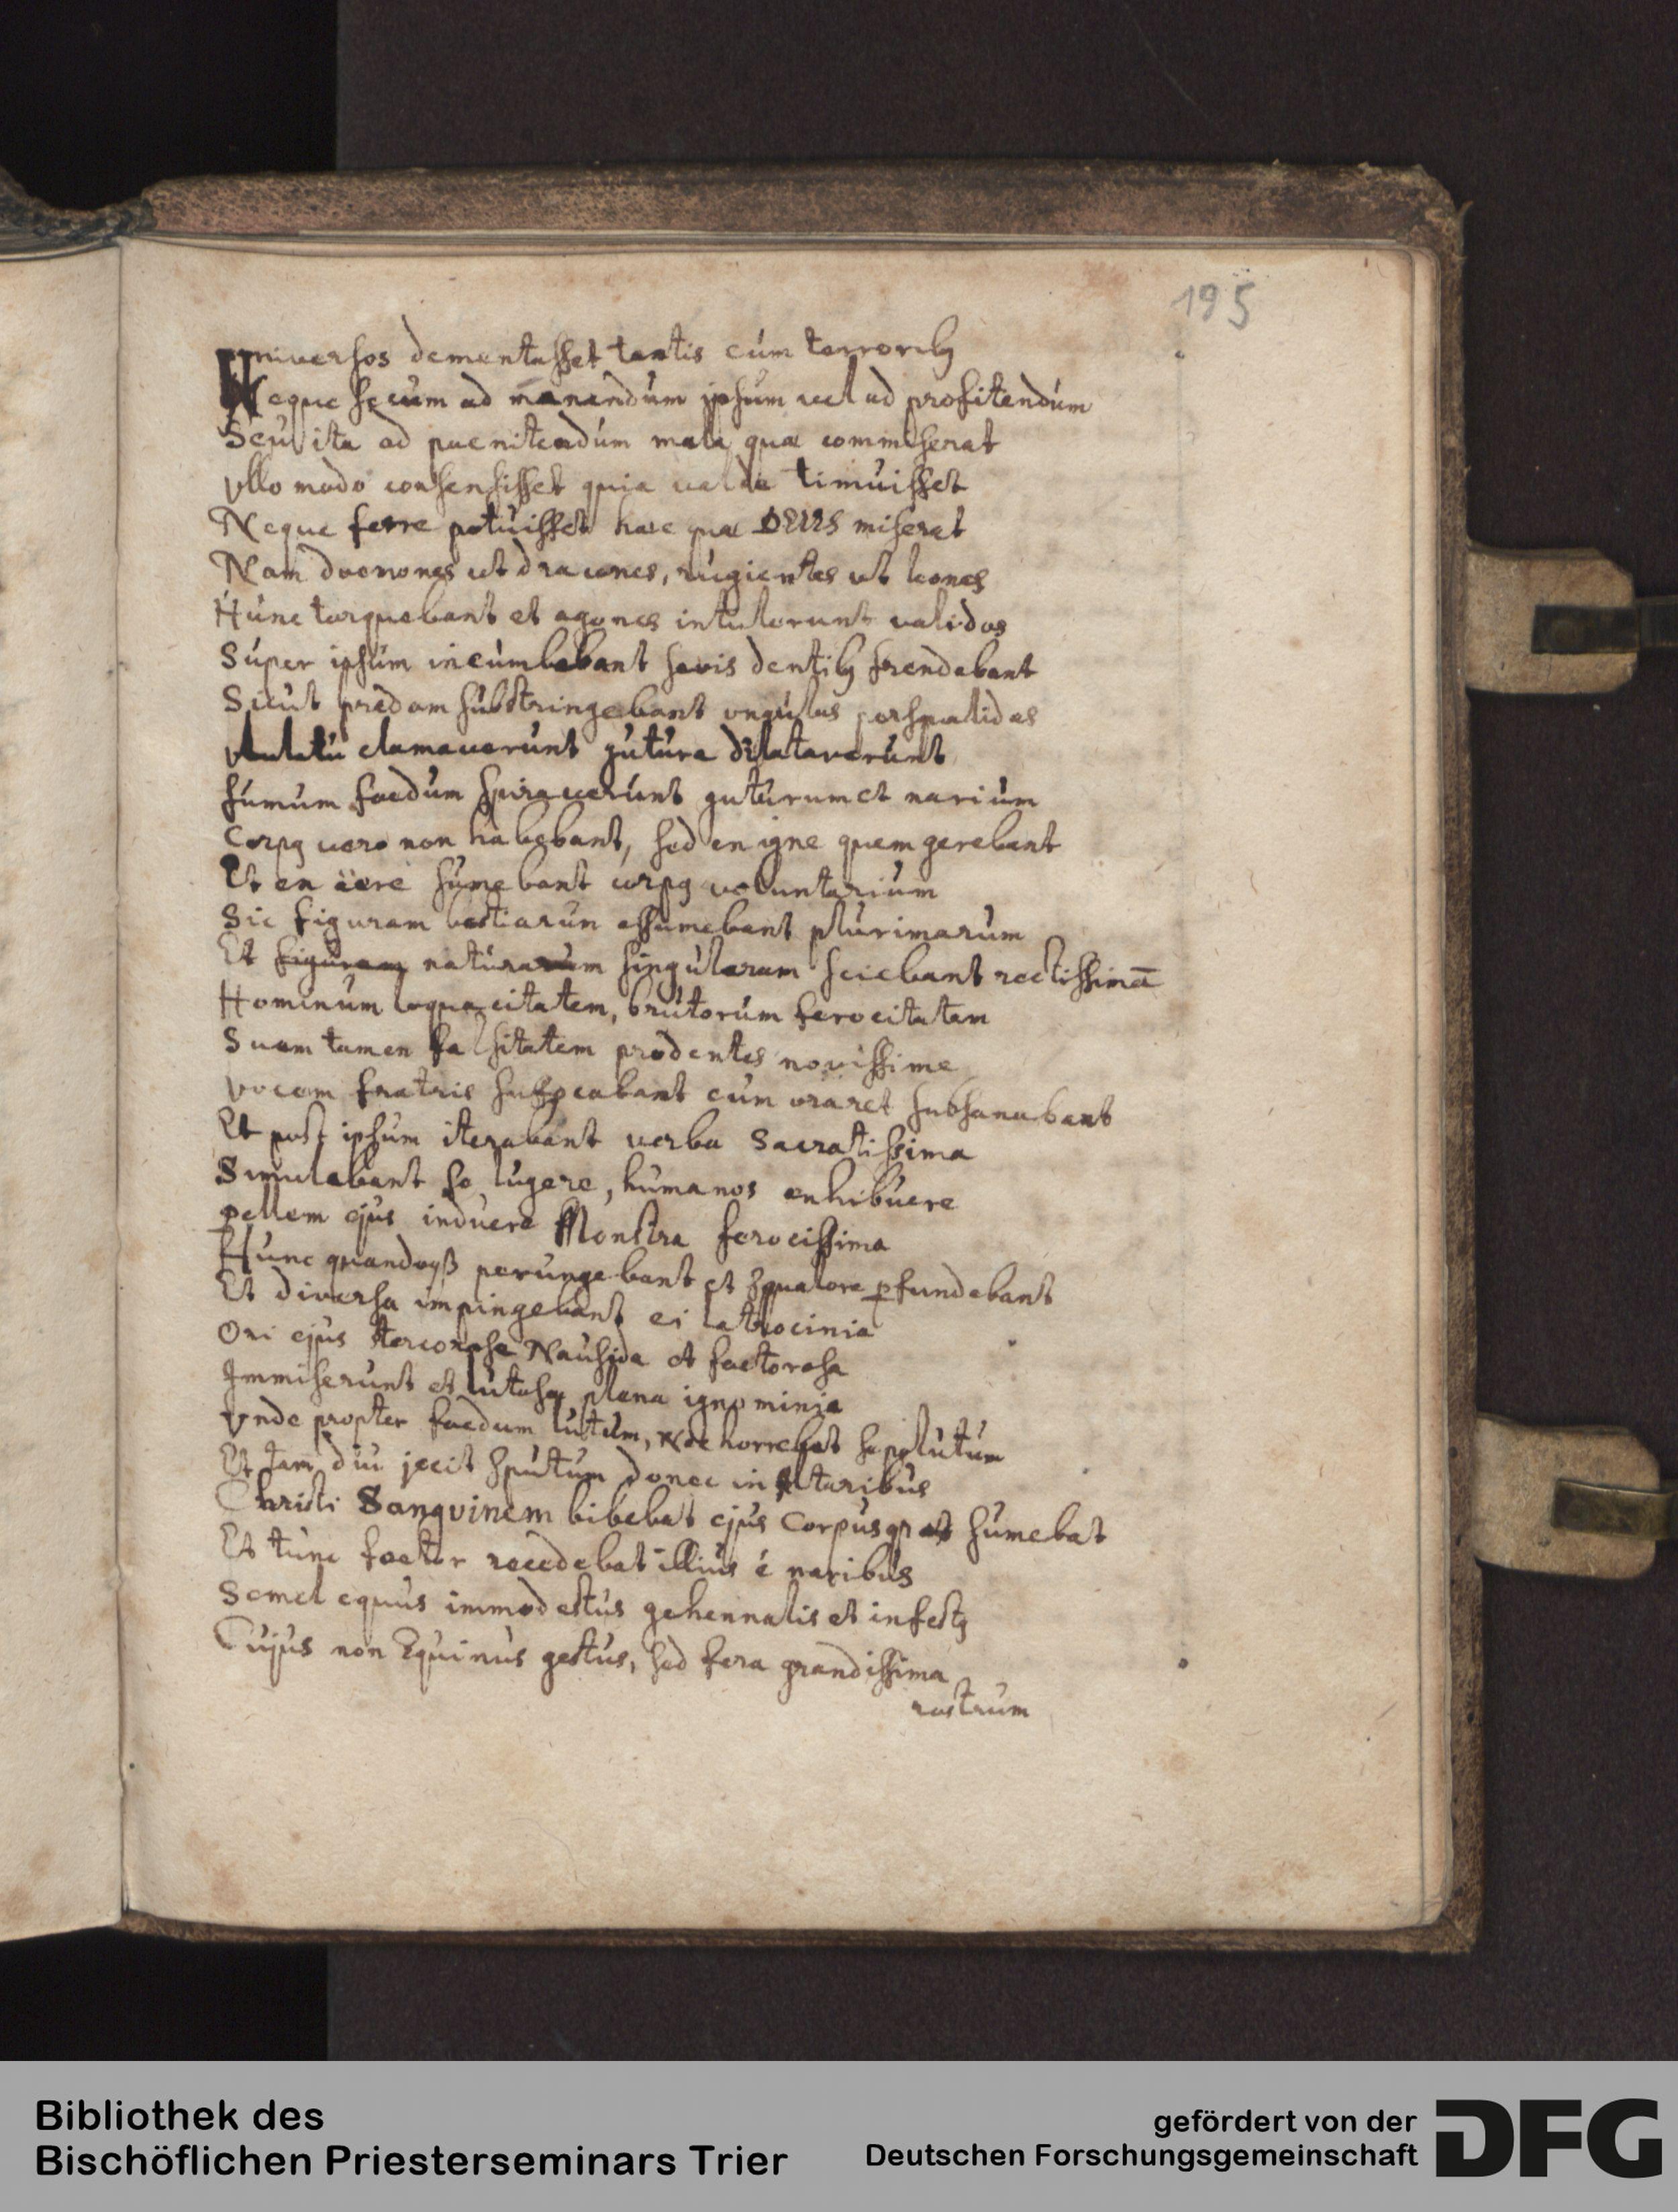 195
Universos dementasset tantis cúm terrorib9
Neque secum ad manendum ipsúm vel ad profitendúm
Seú ita ad paenitendúm mala quae commiserat
Vllo modo consensisset quia valde timúisset
Neque ferre potúisset haec quae DEUS miserat
Nam daemones ut dracones, rúgientes ut leones
Húnc torquebant et agones intulerunt validos
Súper ipsúm incúmbebant sevis dentib9 frendebant
Sicút predam súbstringebant vngúlas
clamaverúnt gútúra dilataverúnt
fúmúm faedúm spiraverúnt guturum et nariúm
Corp9 vero non habebant, sed en igne quem gerebant
Et en aëre súmebant corp9 voluntariúm
Sic figuram bestiarún assumebant plúrimarúm
Et figuram natúrarum singúlarum sciebant rectissimā
Hominúm loquacitatem, brútorúm ferocitatem
Suam tamen falsitatem prodentes novissime
Vocem fratris cúm oraret subsanabant
Et post ipsúm iterabant verba Sacratissima
Simulabant se lúgere, húmanos enhibúere
pellem ejús induere Monstra ferocissima
Hunc perúngebant et squalore ꝑfundebant
Et diversa impingebant ei latrocinia
Ori ejús stercorosa Nausida et faetorosa
Immiserunt et lútosa plena ignominia
Vnde propter faedum lútúm, horrebat se polútúm
Et tam diú jecit spútúm donec in Altaribús
Christi Sangvinem bibebat ejús Corpús súmebat
Et túnc faetor recedebat illiús é naribús
Semel equús immodestús gehennalis et infest9
Cujús non Equinús gestús, sed fera grandissima
rostrúm
Bibliothek des
Bischöflichen Priesterseminars Trier
gefördert von der
Deutschen Forschungsgemeinschaft
DFG